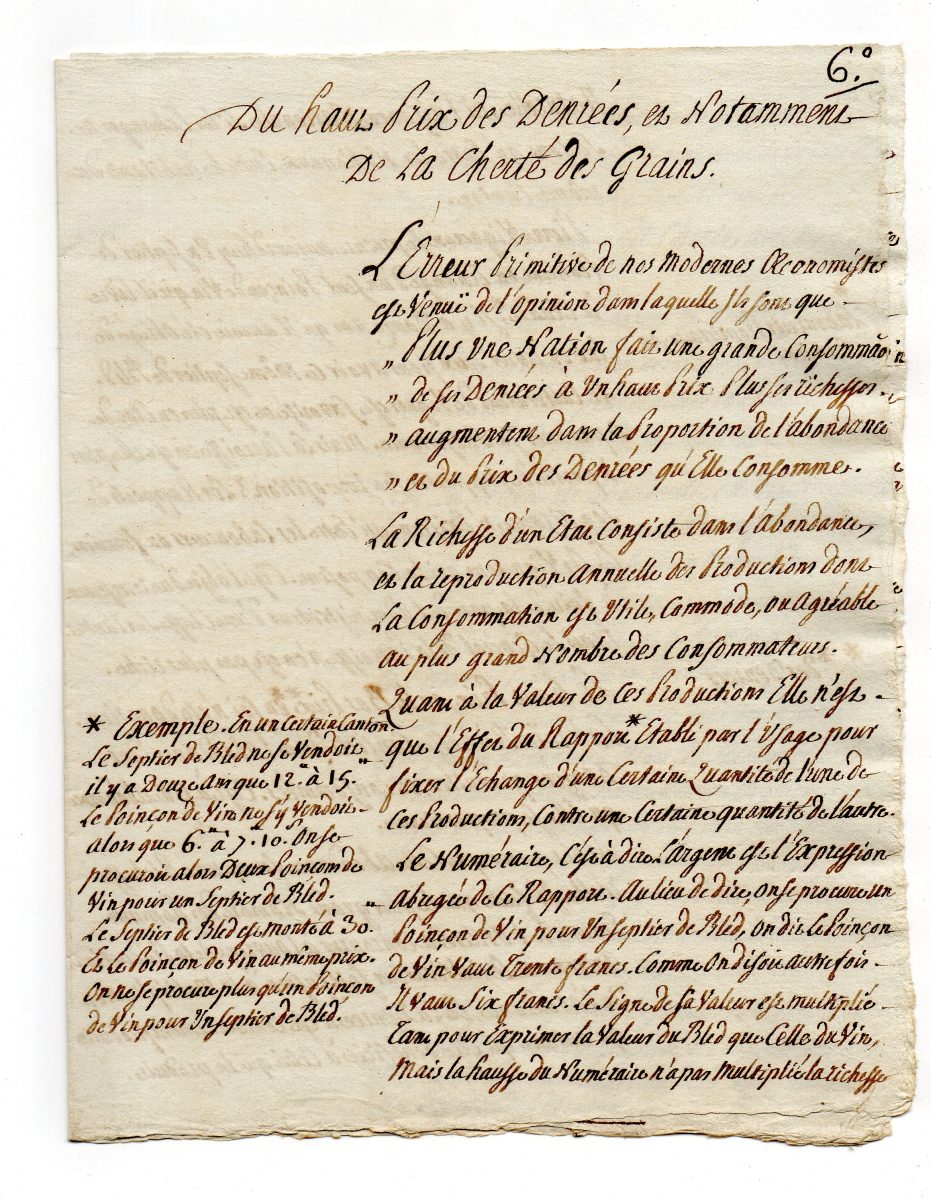 6.º
Du haut Prix des Denrées, et Notamment
De La Cherté des Grains.
L'Erreur Primitive de nos Modernes Œconomistes
est Venuë de l'opinion dans laquelle Ils sont que
„ Plus Une Nation fait une grande Consommãon
„ de ses Denrées à Un haut Prix Plus ses richesses
„ augmentent dans la Proportion de l'abondance
„ et du Prix des Denrées qu'Elle Consomme.
La Richesse d'un Etat Consiste dans l'abondance,
et la reproduction Annuelle des Productions dont
La Consommation est Utile, Commode, ou Agréable
au plus grand Nombre des Consommateurs.
Quant à la Valeur de Ces Productions Elle n'est
que l'Effet du Rapport * Etabli par l'Usage pour
fixer l'Echange d'une Certaine Quantité de l'une de
Ces Productions, Contre une Certaine quantité de l'autre.
Le Numéraire, C'est à dire L'argent est l'Expression
abregée de Ce Rapport. Au lieu de dire, on se procure un
Poinçon de Vin pour Un Septier de Bled, on dit le Poinçon
de Vin Vaut Trente francs. Comme On disoit autre fois
Il vaut Six francs. Le Signe de sa Valeur est multiplié
Tant pour Exprimer la Valeur du Bled que Celle du Vin,
Mais la hausse du Numéraire n'a pas Multiplié la richesse
* Exemple. En un Certain Canton
Le Septier de Bled ne se Vendoit
il y a Douze Ans que 12.ᵗᵗ à 15.ᵗᵗ
Le Poinçon de Vin ne s'y Vendoit
alors que 6.ᵗᵗ à 7.ᵗᵗ10.ˢ On se
procuroit alors Deux Poinçons de
Vin pour un Septier de Bled.
Le Septier de Bled est monté à 30.ᵗᵗ
Et le Poinçon de Vin au même prix.
On ne se procure plus qu'un Poinçon
de Vin pour Un septier de Bled.